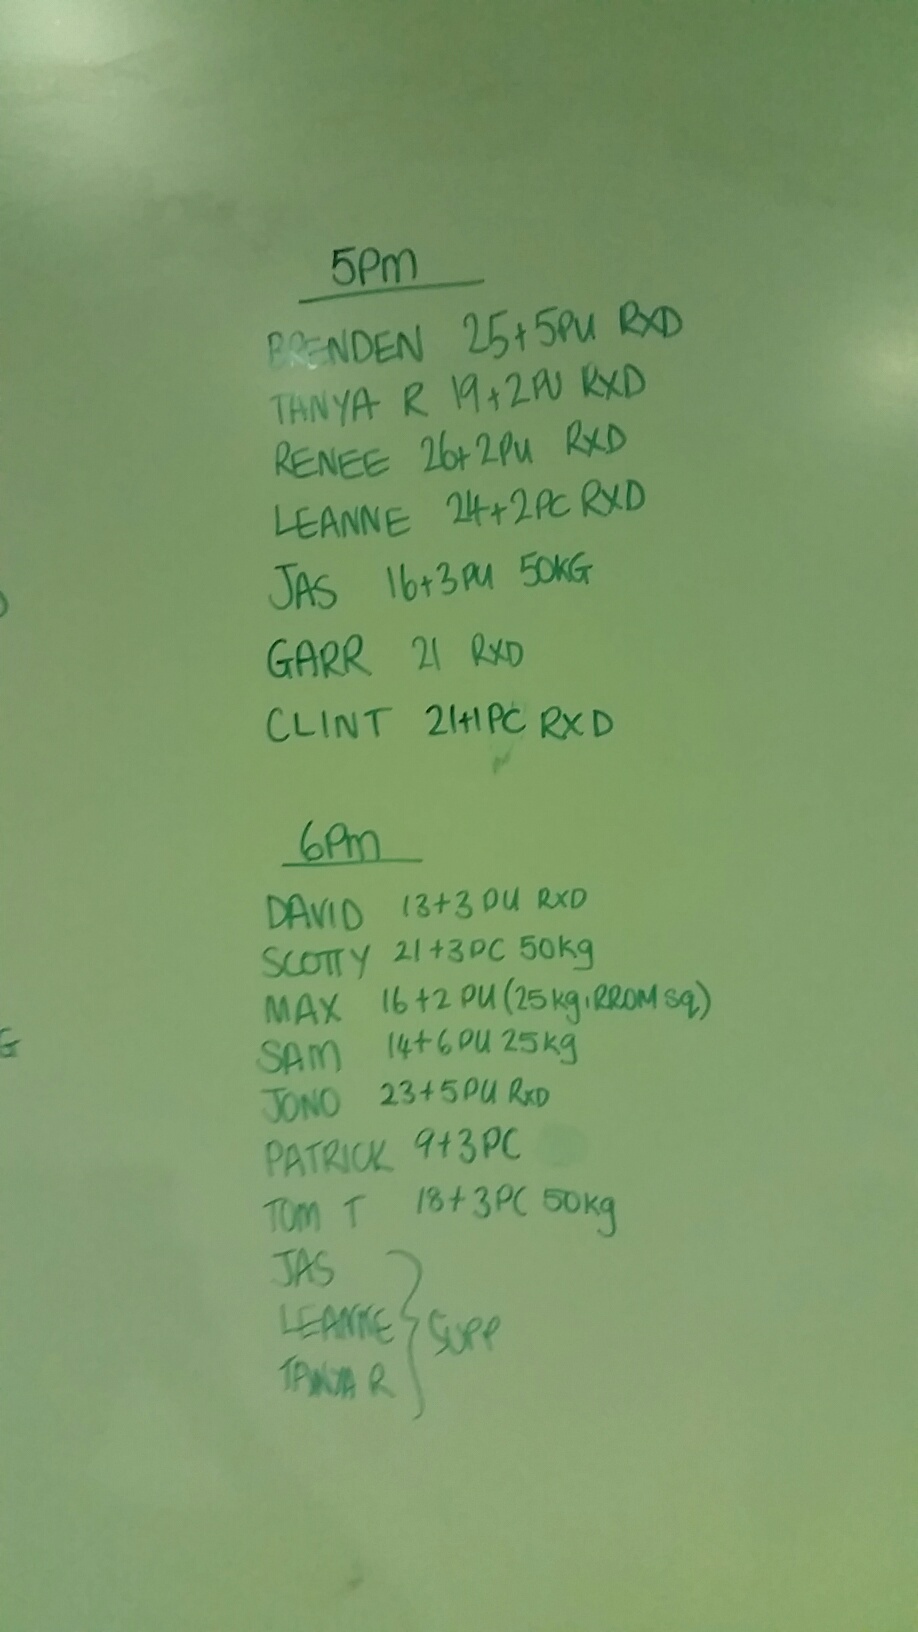 5Pm
BRENDEN 25+5PU RXD
TANYA R 19+2PU RXD
RENEE 26+2PU RXD
LEANNE 24+2PC RXD
JAS 16+3PU 50KG
GARR 21 RXD
CLINT 21+1PC RXD
6Pm
DAVID 13+3PU RXD
SCOTTY 21+3PC 50kg
MAX 16+2PU (25kg, RROM SQ)
SAM 14+6PU 25kg
JONO 23+5PU RXD
PATRICK 9+3PC
TOM T 18+3PC 50kg
JAS
LEANNE } SUPP
TANYA R